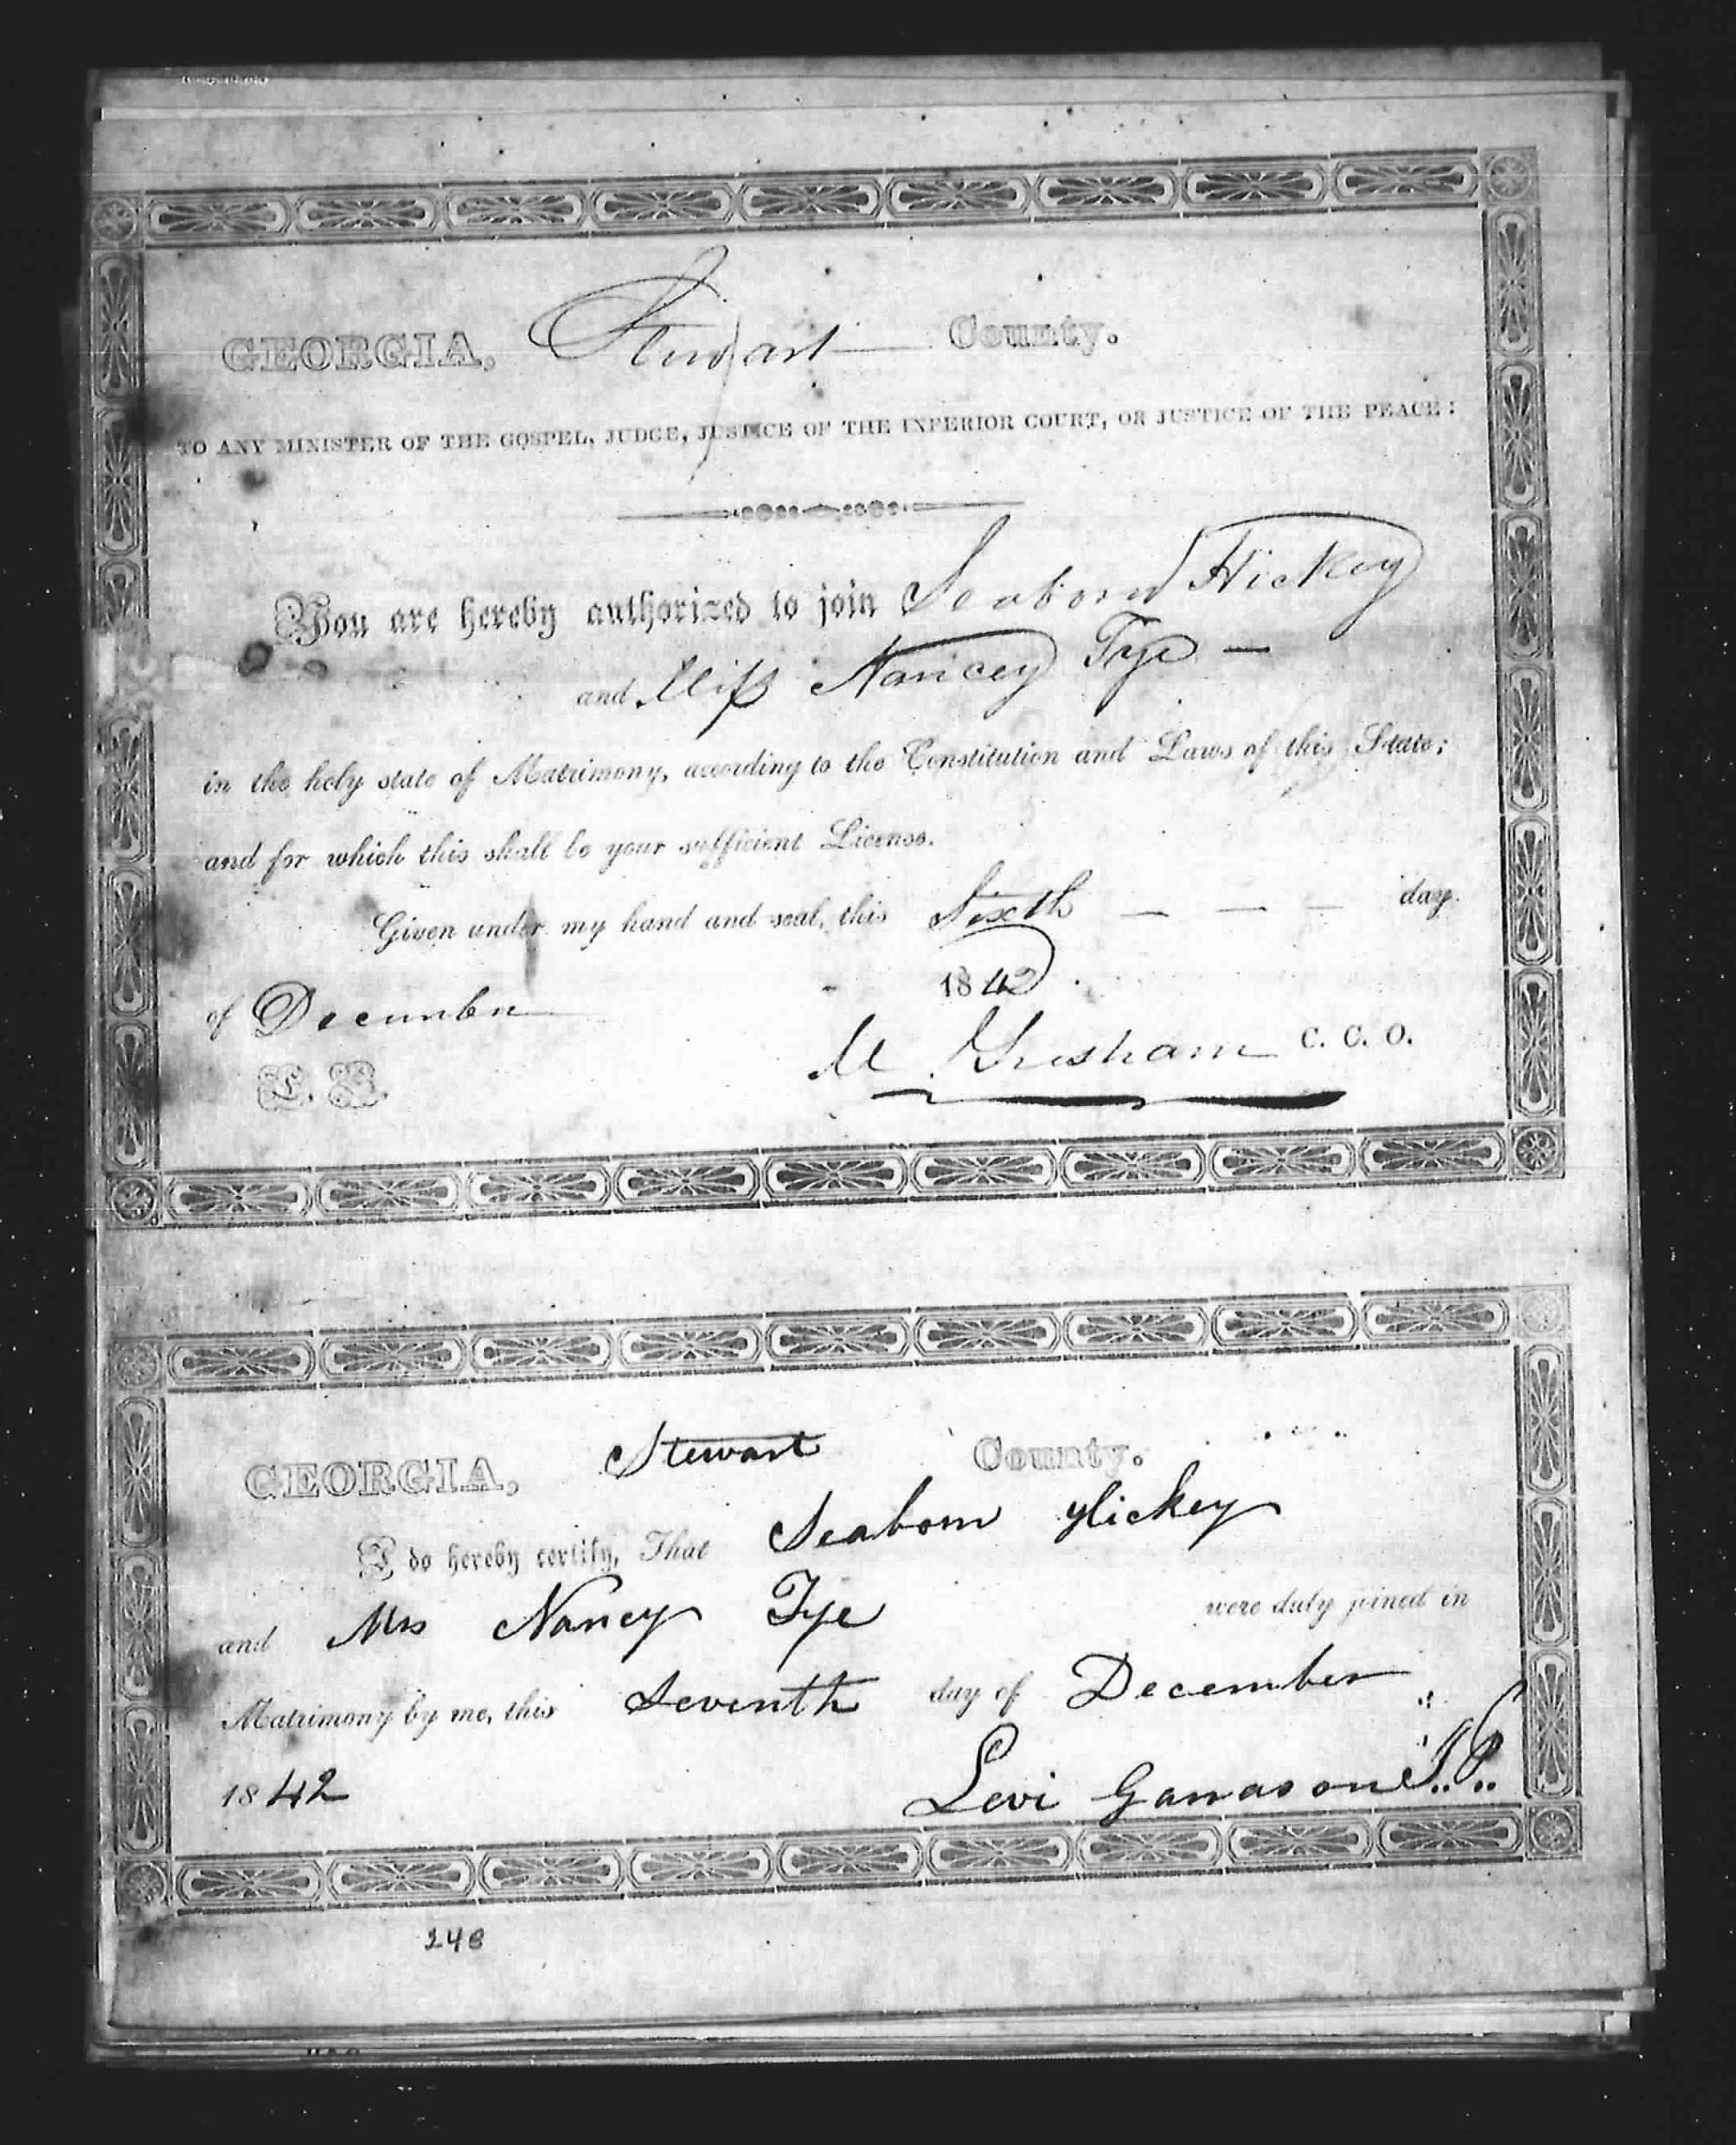 GEORGIA, Stewart County.
TO ANY MINISTER OF THE GOSPEL, JUDGE, JUSTICE OF THE INFERIOR COURT, OR JUSTICE OF THE PEACE:
You are hereby authorized to join Seaborn Hickey
and Miss Nancey Tye —
in the holy state of Matrimony, according to the Constitution and Laws of this State;
and for which this shall be your sufficient License.
Given under my hand and seal, this Sixth — — — day
of December 1842
L. S. M Gresham C. C. O.
GEORGIA, Stewart County.
I do hereby certify, That Seaborn Hickey
and Mrs Nancy Tye were duly joined in
Matrimony by me, this Seventh day of December
1842 Levi J.P.
248